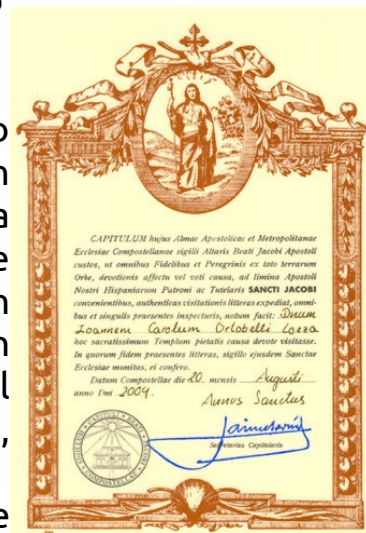 o
n
a
e
n
n
l
,
e
CAPITULUM hujus Almae Apostolicae et Metropolitanae
Ecclesiae Compostellanae sigilli Altaris Beati Jacobi Apostoli
custos, ut omnibus Fidelibus et Peregrinis ex toto terrarum
Orbe, devotionis affectu vel voti causa, ad limina Apostoli
Nostri Hispaniarum Patroni ac Tutelaris SANCTI JACOBI
convenientibus, authenticas visitationis litteras expediat, omni-
bus et singulis praesentes inspecturis, notum facit: Dnum
Joannem Carolum Orlobelli Lozza
hoc sacratissimum Templum pietatis causa devote visitasse.
In quorum fidem praesentes litteras, sigillo ejusdem Sanctae
Ecclesiae munitas, ei confero.
Datum Compostellae die 20 mensis Augusti
anno Dni 2004.
Annus Sanctus
Secretarius Capitularis